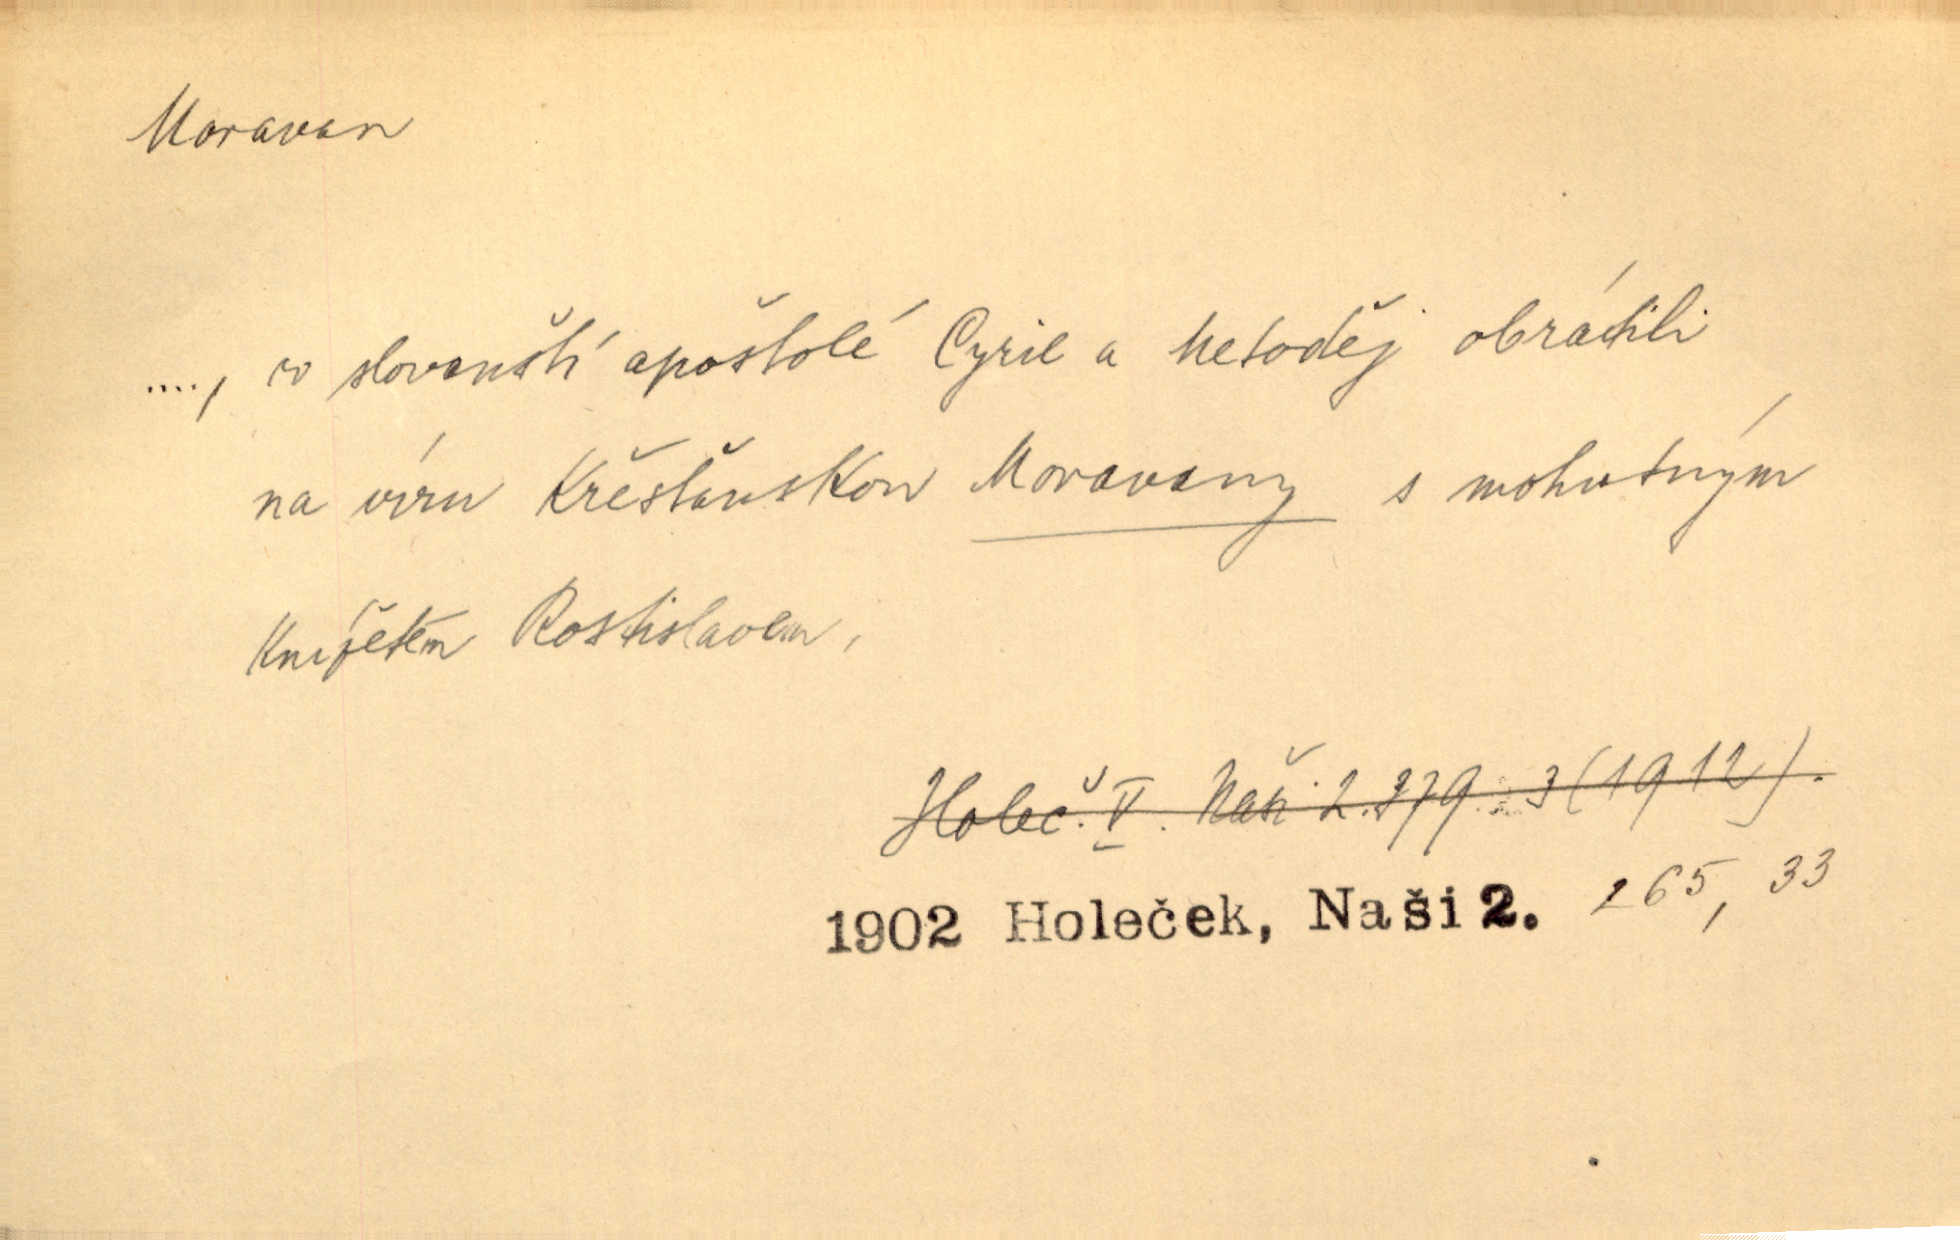 Moravan
...., co slovanští apoštolé Cyril a Metoděj obrátili
na víru křesťanskou Moravany s mohutným
knížetem Rostislavem,
Holeč. V. Naši 2. 379. 3 (1912).
1902 Holeček, Naši 2. 265, 33